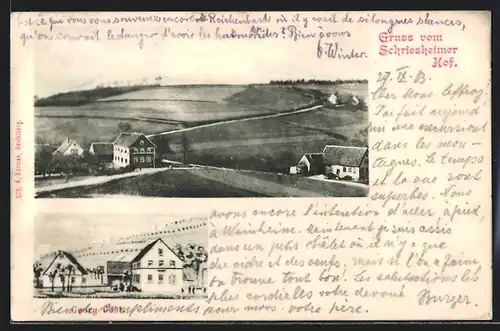 Est ce que vous vous souvenez encore de Reichenbart où il y avait de si longues séances,
qu'on courait le danger d'avoir les ? Bien à vous
Winter.
Gruss vom
Schriesheimer
Hof.
27. IX. 03.
Cher Mons. Geffroy!
J'ai fait aujourd'hui
une excursion
dans les mon-
tagnes. Le temps
et la vue sont
superbes. Nous
avons encore l'intention d'aller à pied,
à Weinheim. Maintenant je suis assis
dans un petit châlet où il n'y a que
du cidre et des oeufs. mais si l'on a faim,
on trouve tout bon! Les salutations les
plus cordiales votre dévoué Burger.
Bien des compliments pour mons. votre père.
Georg
Heidelberg.